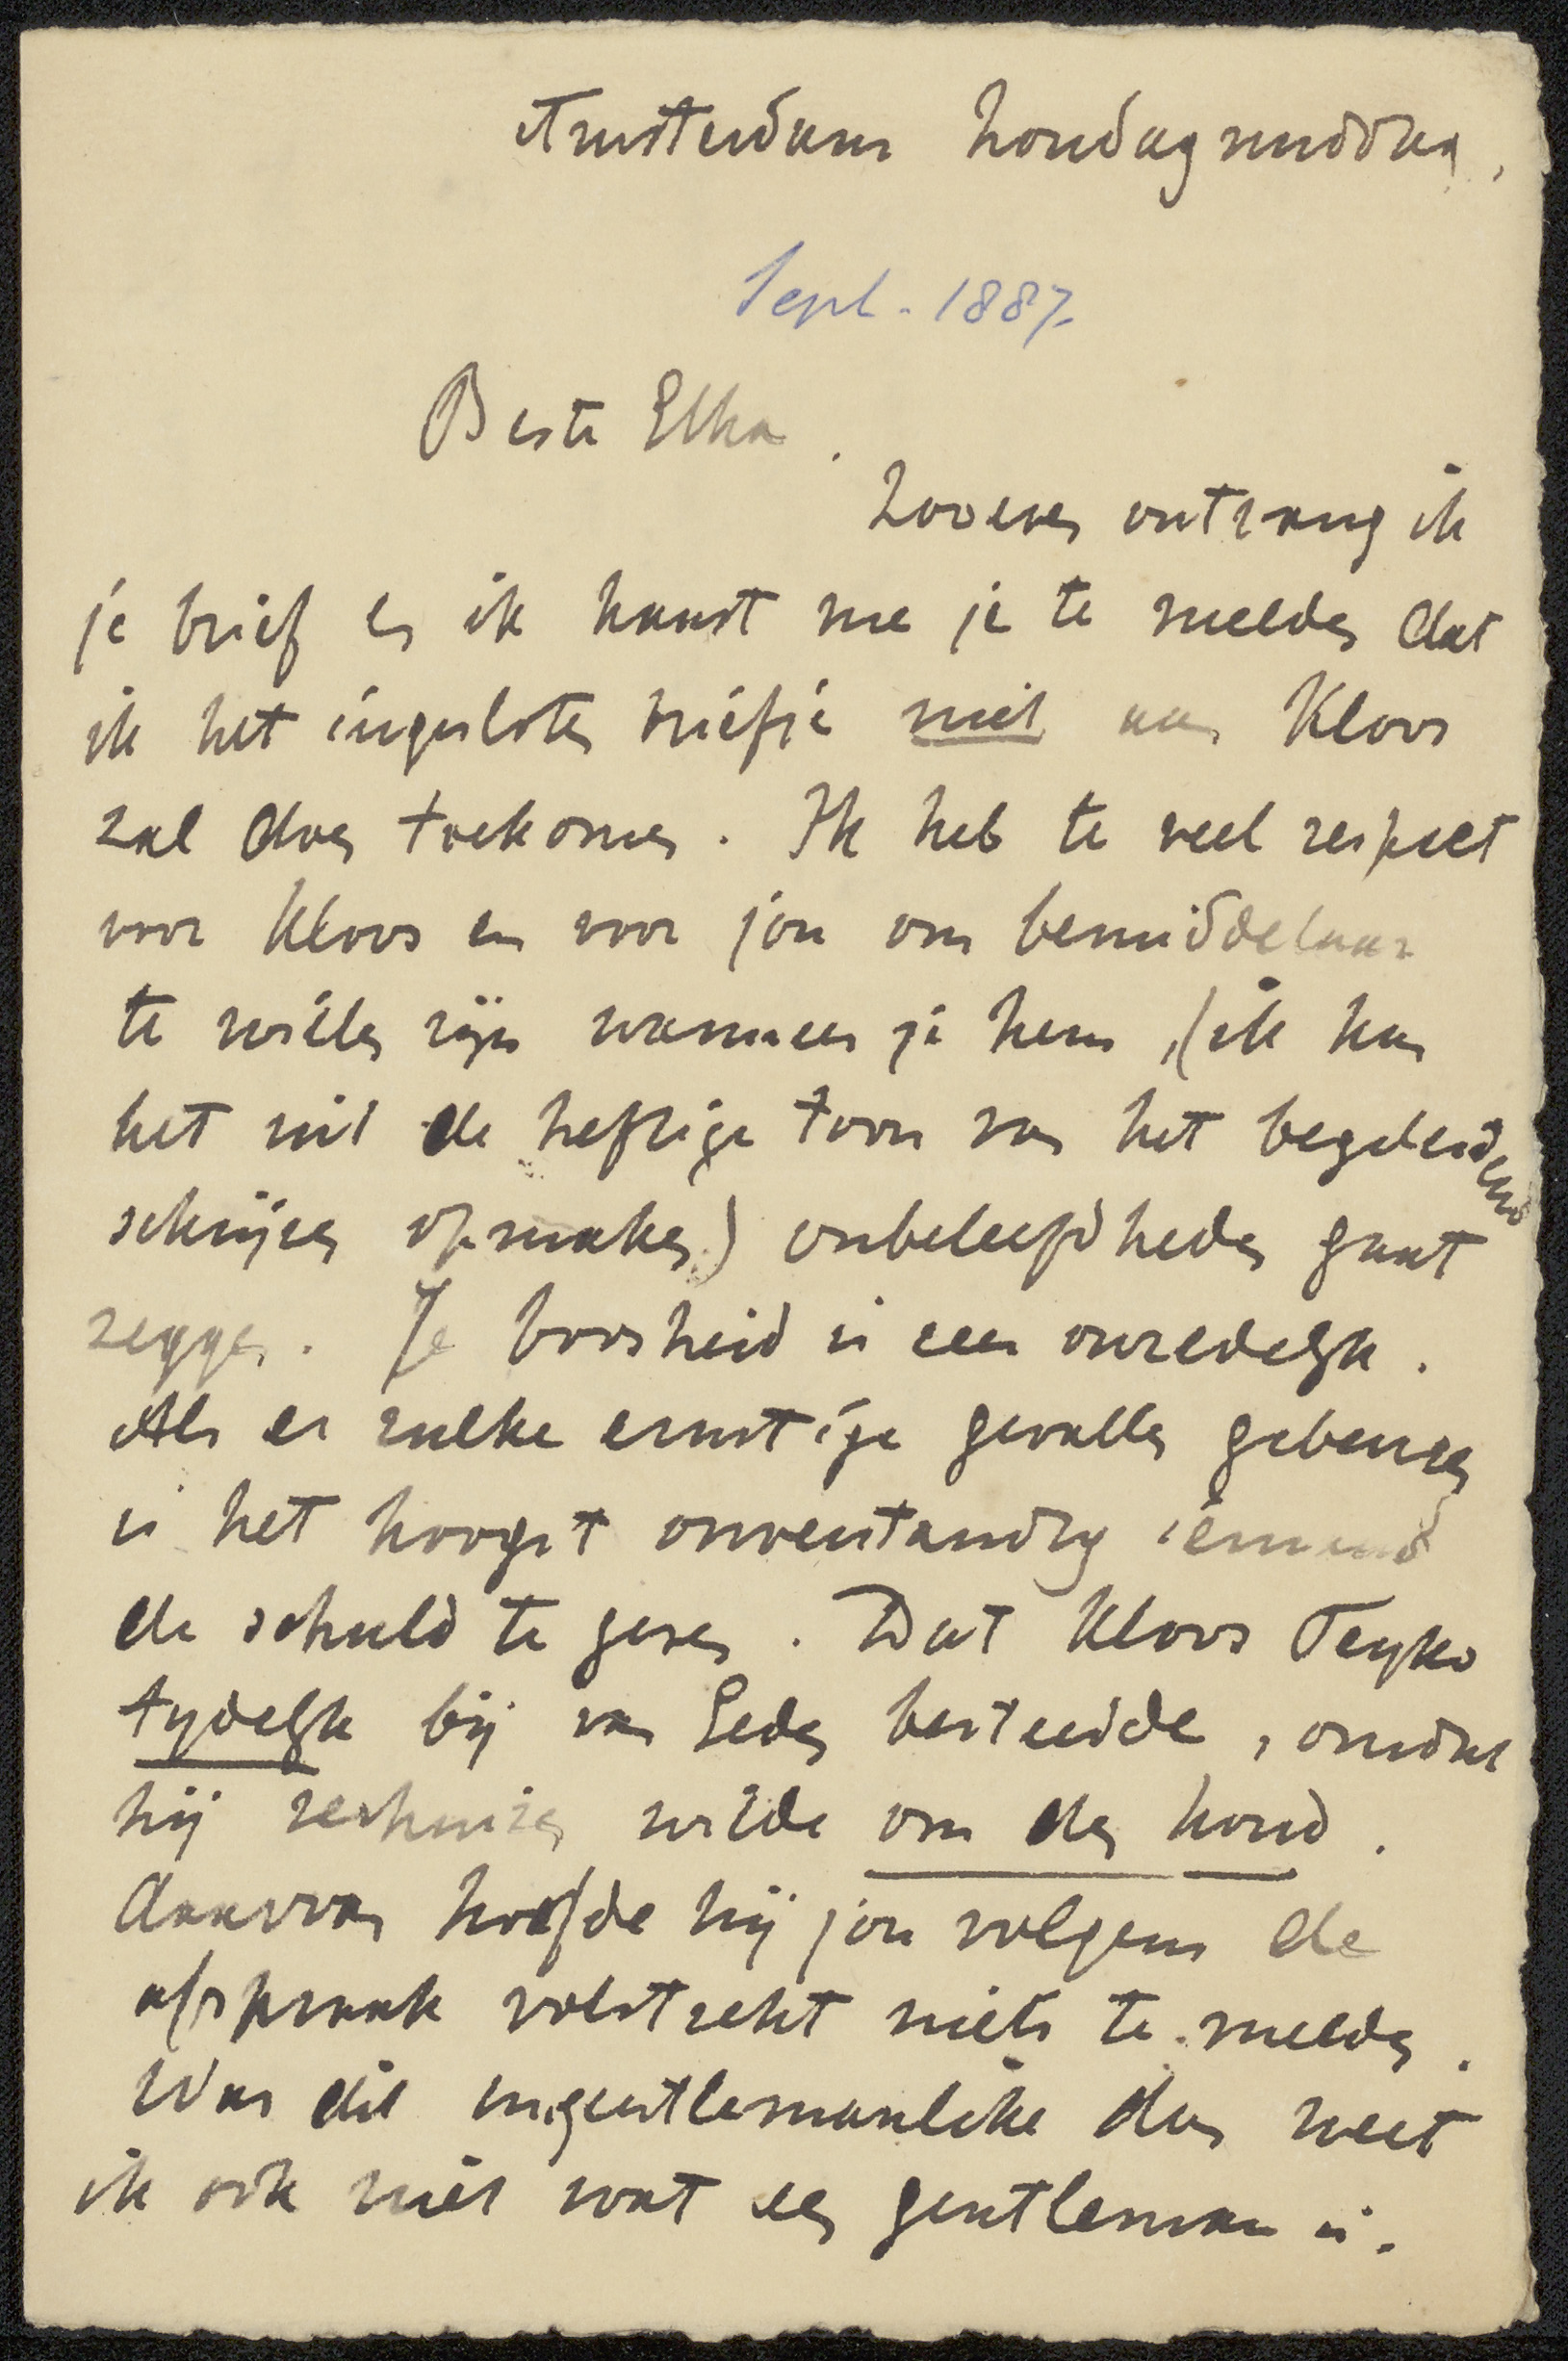 Amsterdam Zondagmiddag,
Sept. 1887.
Beste Elha.
Zooeven ontvang ik
je brief en ik haast me je te melden dat
ik het ingesloten briefje niet aan Kloos
zal doen toekomen. Ik heb te veel respect
voor Kloos en voor jou om bemiddelaar
te willen zijn wanneer je hem, (ik kan
het uit de heftige toon van het begeleidend
schrijven opmaken) onbeleefdheden gaat
zeggen. Je boosheid is zeer onredelijk.
Als er zulke ernstige gevallen gebeuren
is het hoogst onverstandig iemand
de schuld te geven. Dat Kloos Teyko
tydelijk bij van Eeden besteedde, omdat
hij verhuizen wilde om den hond.
daarvan hoefde hij jou volgens de
afspraak volstrekt niets te melden.
Was dit ungentlemanlike dan weet
ik ook niet wat een gentleman is.